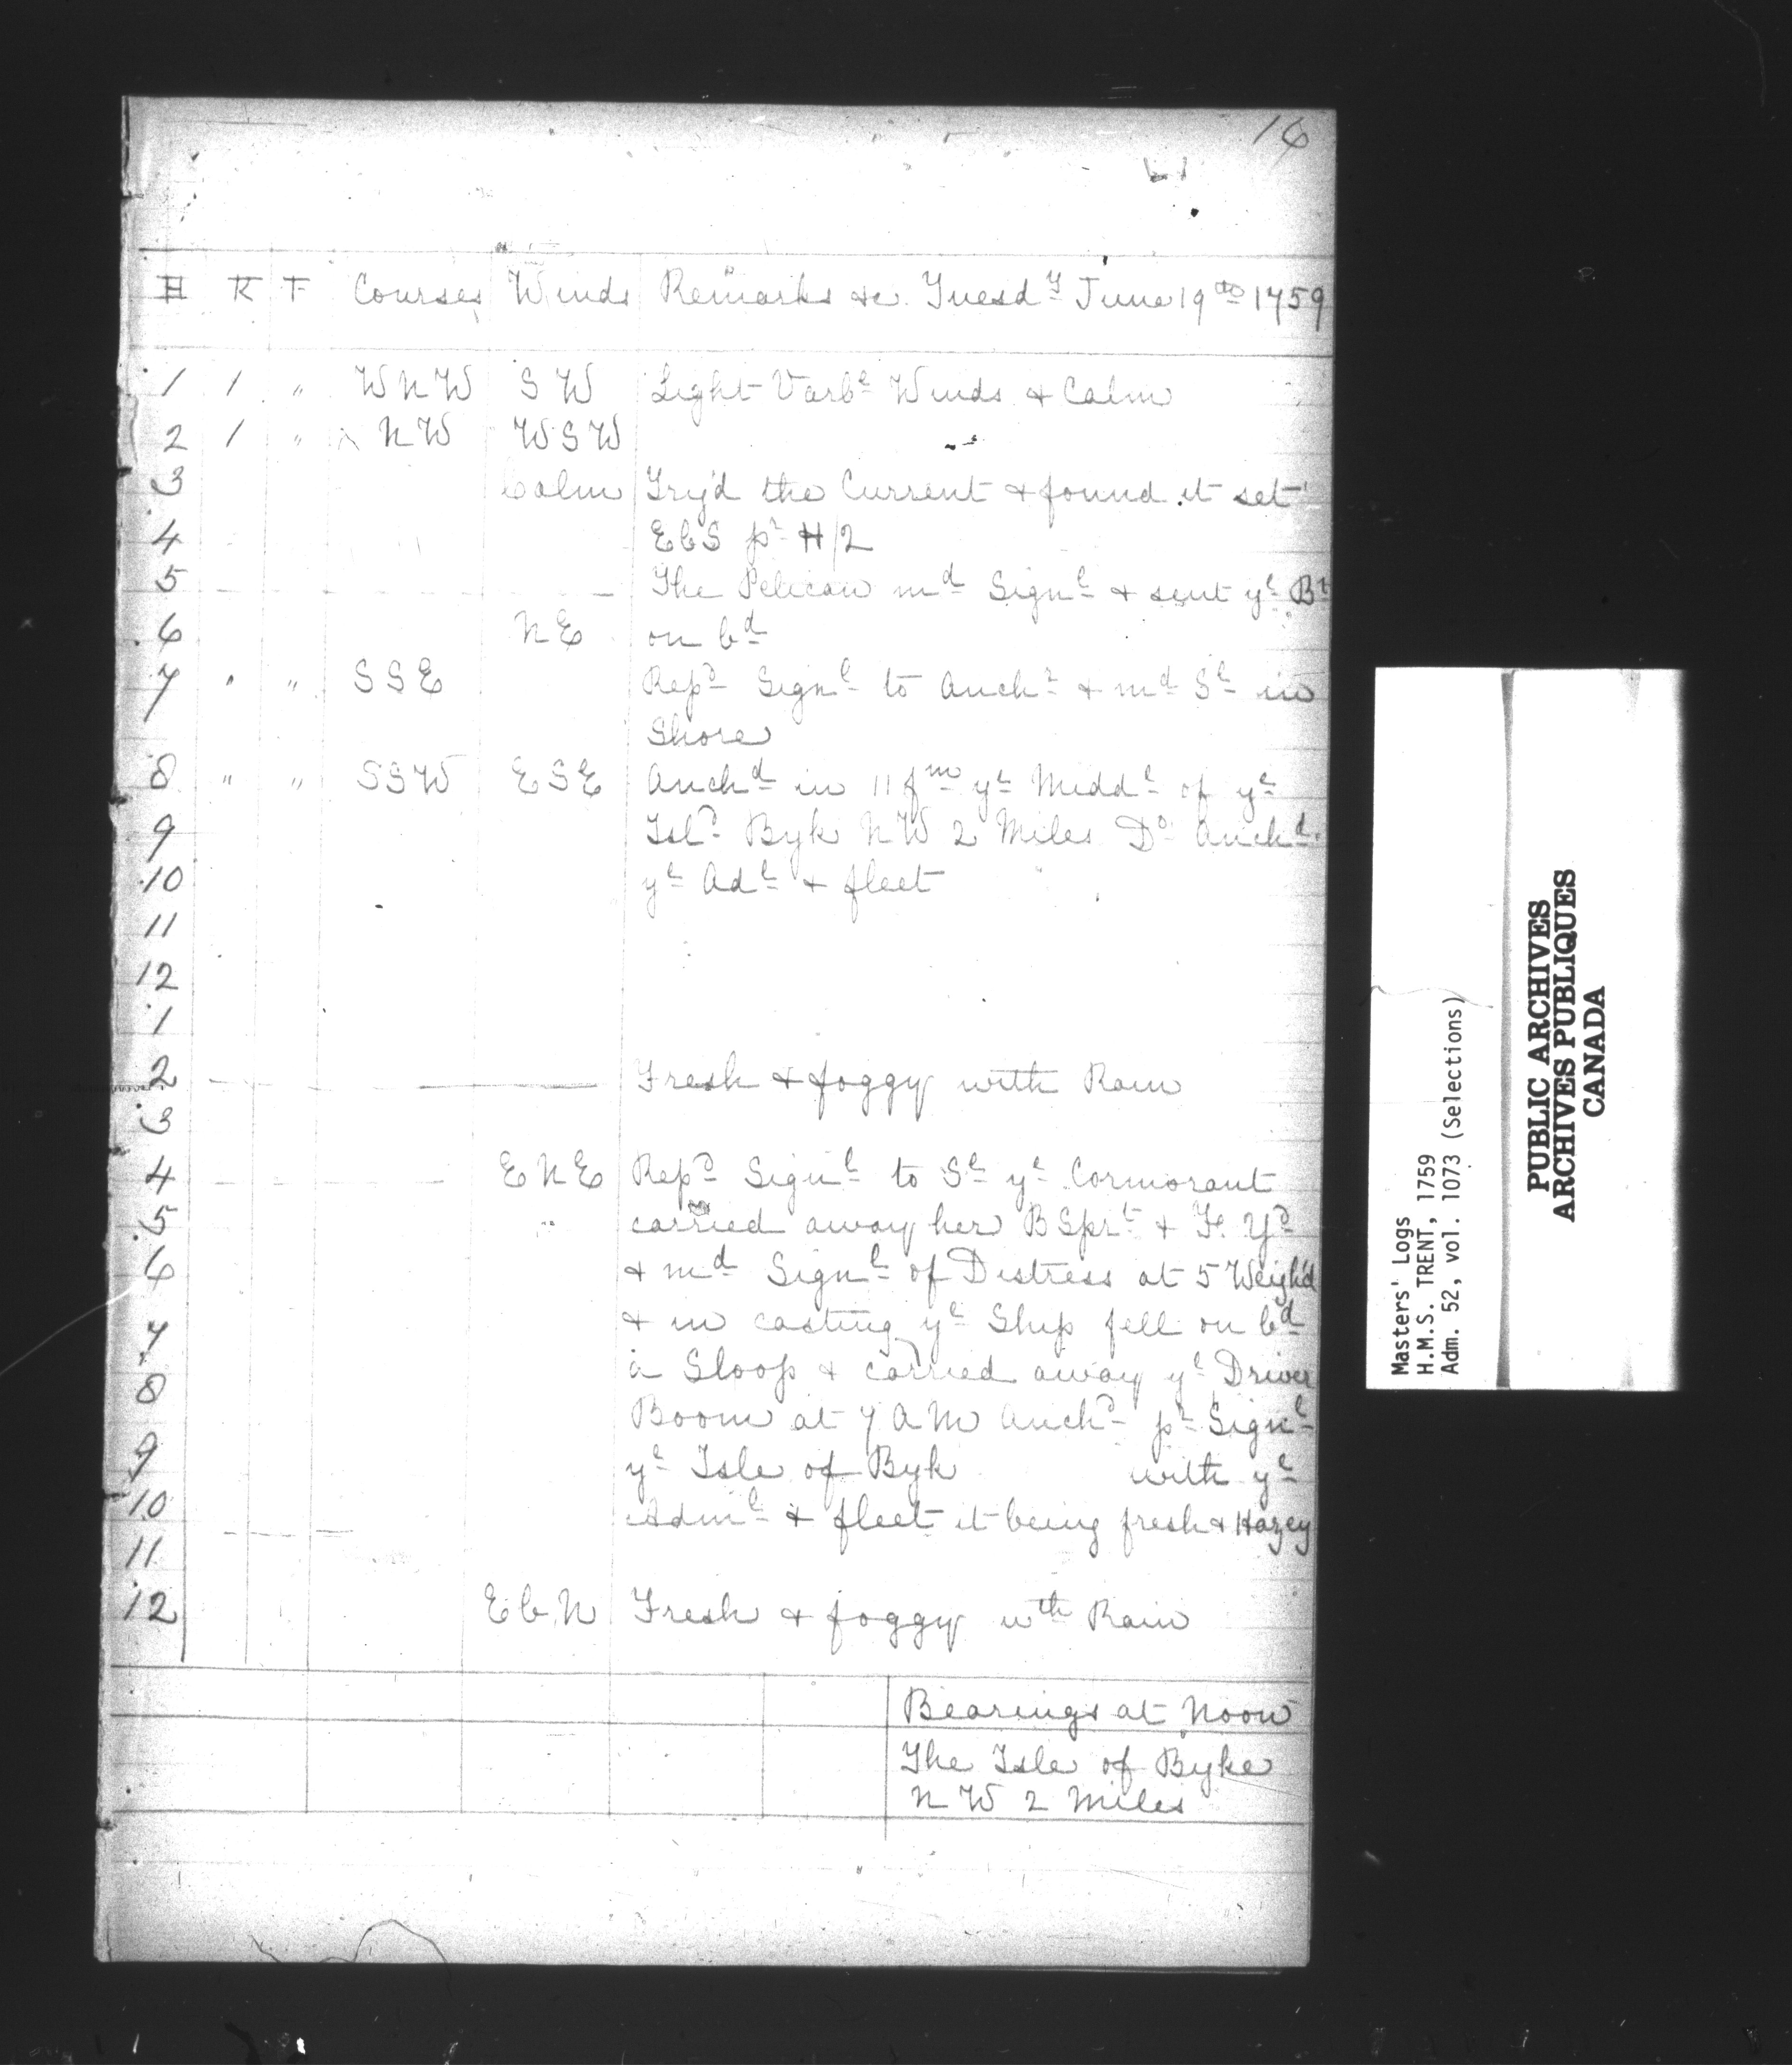 16
H K F Courses Winds Remarks &c. Tuesdy June 19th 1759
1 1 " WNW SW Light Varbe Winds & Calm
2 1 " NW WSW
3 Calm Try'd the Current & found it set
4 EbS pr H/2
5 The Pelican md Signl & sent ye Bt
6 NE on bd
7 " " SSE Repd Signl to Anchr & md Sl in
Shore
8 " " SSW ESE Anchd in 11 fm ye Middl of ye
9 Isld Byk NW 2 Miles Do Anchd
10 ye Adl & fleet
11
12
1
2 Fresh & foggy with Rain
3
4 ENE Repd Signl to Sl ye Cormorant
5 " carried away her BSprt & F. Yd
6 & md Signl of Distress at 5 Weigh'd
7 & in casting ye Ship fell on bd
a Sloop & carried away ye Driver
8 Boom at 7 AM Anchd pr Signl
9 ye Isle of Byk with ye
10 Adml & fleet it being fresh & Hazey
11
12 EbN Fresh & foggy wth Rain
Bearings at Noon
The Isle of Byke
NW 2 Miles
Masters' Logs
H.M.S. TRENT, 1759
Adm. 52, vol. 1073 (Selections)
PUBLIC ARCHIVES
ARCHIVES PUBLIQUES
CANADA